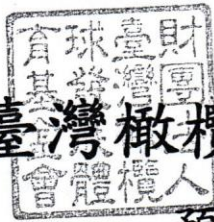 財團法人
臺灣橄欖
球發展體
育基金會
臺灣橄